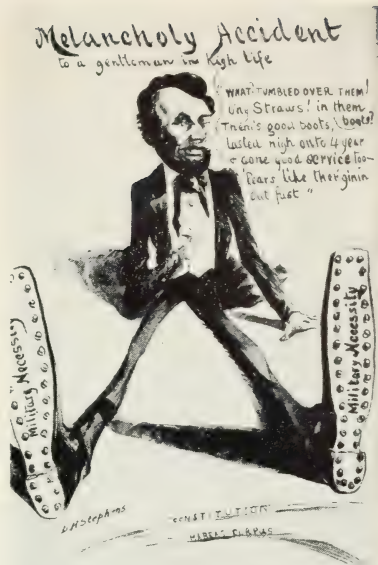 Melancholy Accident
to a gentleman in high life
"WHAT! TUMBLED OVER THEM!
Straws! in them boots?
Them's good boots,
lasted nigh onto 4 year
& done good service too—
'Pears like
out fust"
Military Necessity
Military Necessity
Stephens
CONSTITUTION
HABEAS CORPAS